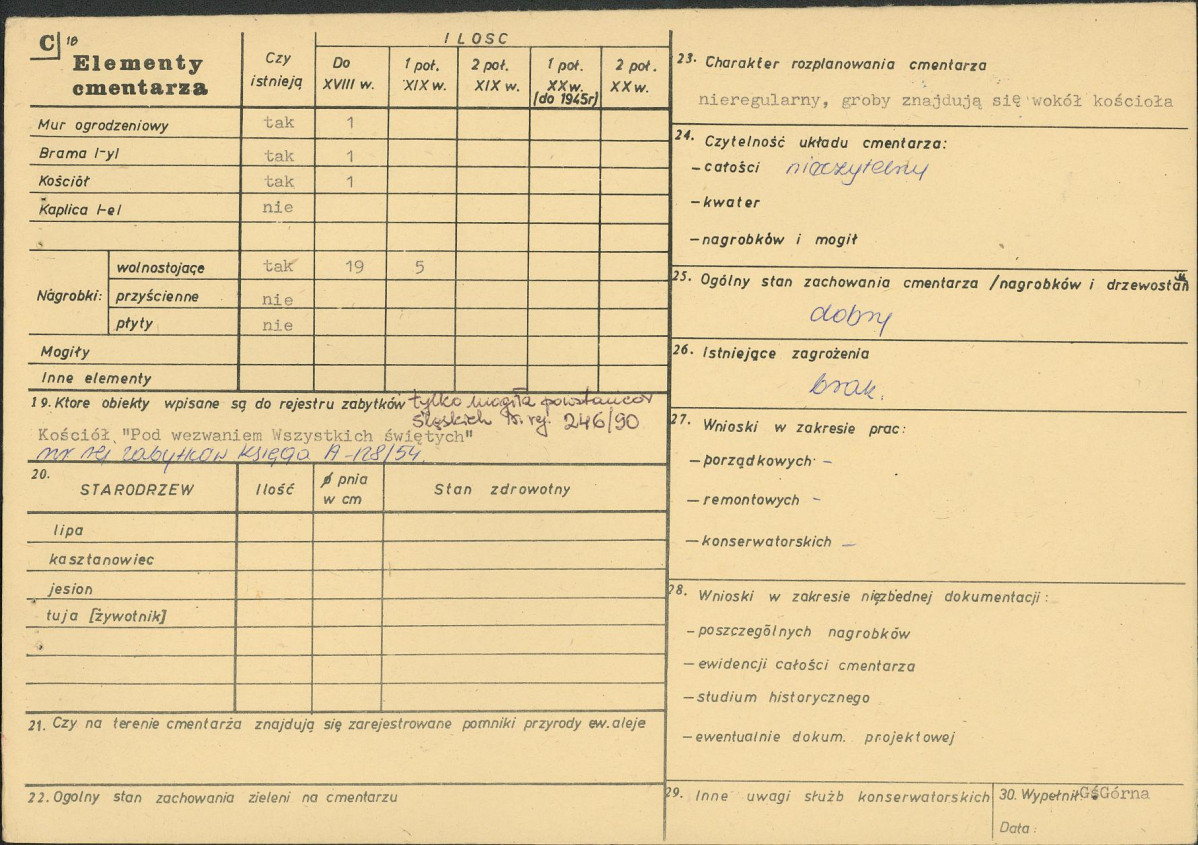 C 18 Elementy cmentarza
Czy istnieją
ILOSC
Do XVIII w.
1 poł. XIX w.
2 poł. XIX w.
1 poł. XX w. (do 1945r)
2 poł. XX w.
Mur ogrodzeniowy tak 1
Brama /-y/ tak 1
Kościół tak 1
Kaplica /-e/ nie
Nagrobki: wolnostojące tak 19 5
przyścienne nie
płyty nie
Mogiły
Inne elementy
19. Ktore obiekty wpisane są do rejestru zabytków tylko mogiła powstańców
śląskich nr. rej. 246/90
Kościół "Pod wezwaniem Wszystkich świętych"
nr rej zabytków Księga A-128/54.
20. STARODRZEW
Ilość
ø pnia w cm
Stan zdrowotny
lipa
kasztanowiec
jesion
tuja [żywotnik]
21. Czy na terenie cmentarza znajdują się zarejestrowane pomniki przyrody ew. aleje
22. Ogolny stan zachowania zieleni na cmentarzu
23. Charakter rozplanowania cmentarza
nieregularny, groby znajdują się wokół kościoła
24. Czytelność układu cmentarza:
- całości nieczytelny
- kwater
- nagrobków i mogił
25. Ogólny stan zachowania cmentarza /nagrobków i drzewostan
dobry
26. Istniejące zagrożenia
brak.
27. Wnioski w zakresie prac:
- porządkowych -
- remontowych -
- konserwatorskich -
28. Wnioski w zakresie niezbędnej dokumentacji:
- poszczególnych nagrobków
- ewidencji całości cmentarza
- studium historycznego
- ewentualnie dokum. projektowej
29. Inne uwagi służb konserwatorskich
30. Wypełnił: G. Górna
Data: